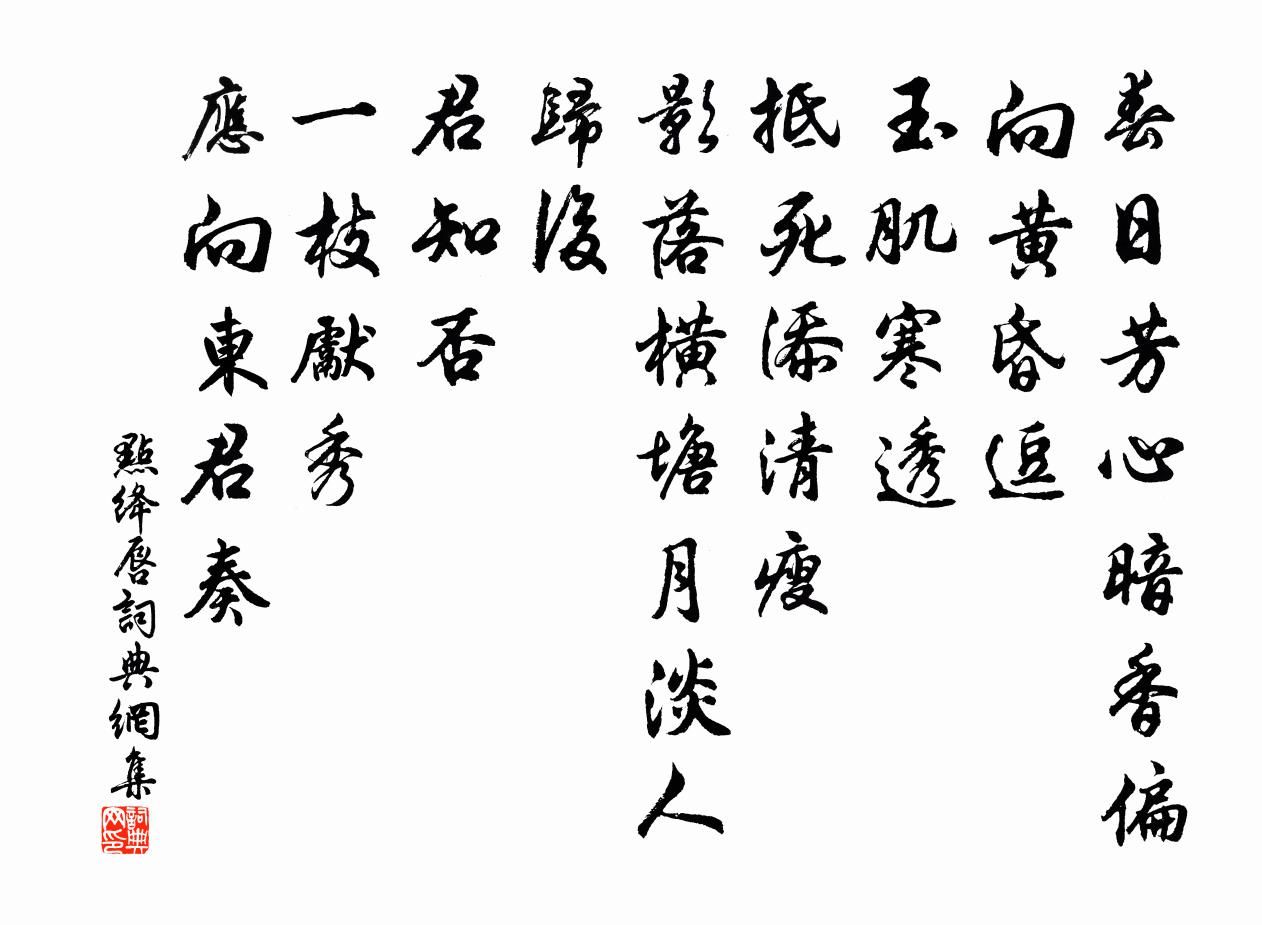 春日芳心暗香偏
向黄昏逗
玉肌寒透
抵死添清瘦
影落橫塘月淡人
歸後
君知否
一枝獻秀
應向東君奏
點絳唇詞典網集
詞典网印